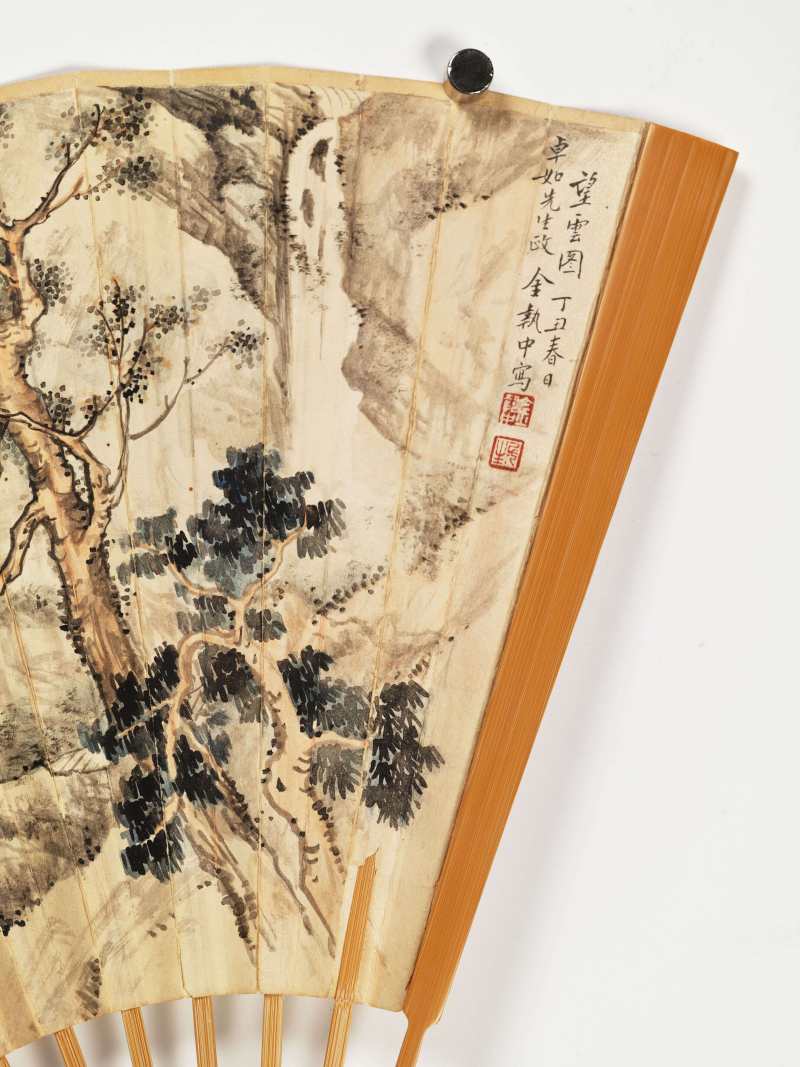 望雲圖 丁丑春日
卓如先生政 金執中寫